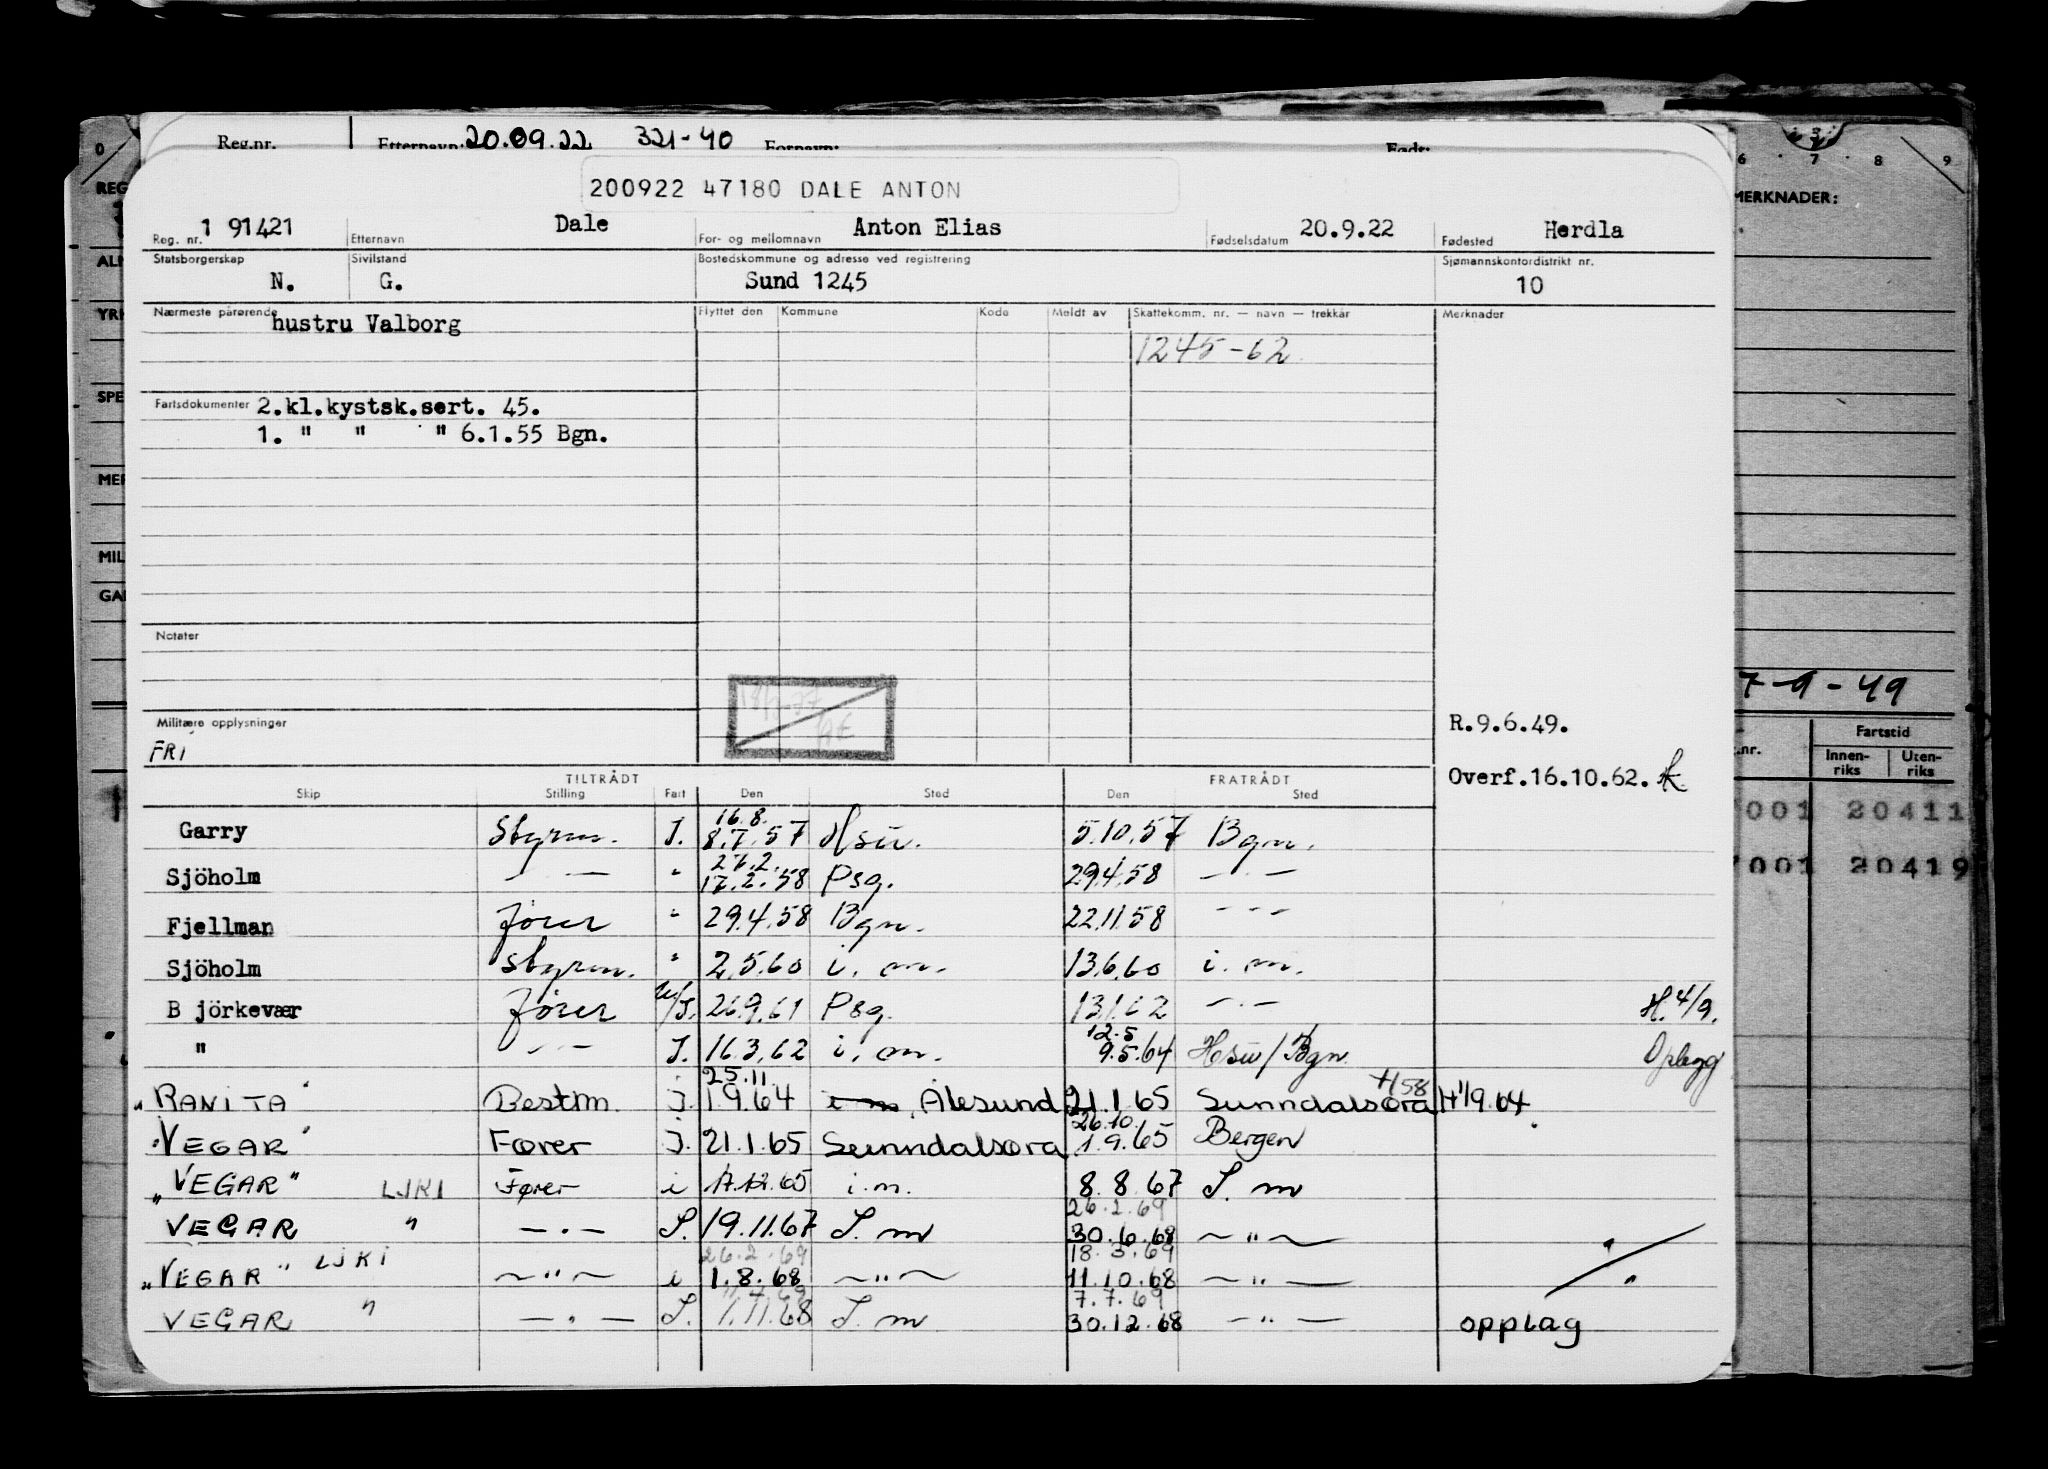 Reg.nr. Etternavn: 20.09.22 321-40 Fornavn: Født:
200922 47180 DALE ANTON
1 91421 Dale Anton Elias 20.9.22 Herdla
Reg. nr. Etternavn For- og mellomnavn Fødselsdatum Fødested
Statsborgerskap Sivilstand Bostedskommune og adresse ved registrering Sjømannskontordistrikt nr.
N. G. Sund 1245 10
Nærmeste pårørende Flyttet den Kommune Kode Meldt av Skattekomm. nr. — navn — trekkår Merknader
hustru Valborg
1245-62
Fartsdokumenter 2.kl.kystsk.sert. 45.
1. " " " 6.1.55 Bgn.
Notater
Militære opplysninger
FRI
R.9.6.49.
Overf.16.10.62.
TILTRÅDT FRATRÅDT
Skip Stilling Fart Den Sted Den Sted
16.8.
Garry Styrm. I. 8.7.57 Hsu. 5.10.57 Bgn.
27.2.
Sjöholm — · — " 17.2.58 Psg. 29.4.58 — · —
Fjellman fører " 29.4.58 Bgn. 22.11.58 - - -
Sjöholm styrm. " 2.5.60 i. m. 13.6.60 i. m.
B jörkevær fører U/I. 26.9.61 Psg. 13.1.62 — · — H. 4/9.
12.5
" — · — I. 16.3.62 i. m. 9.5.64 Hsu/Bgn. Oplegg
25.11.
"RANITA" Bestm. I. 1.9.64 i m Ålesund 21.1.65 Sunndalsøra H 1/9.64
26.10.
"VEGAR" Fører I. 21.1.65 Sunndalsøra 1.9.65 Bergen
"VEGAR" LJKI Fører i 17.12.65 i.m. 8.8.67 S. m
26.2.69
VEGAR " — · — S. 19.11.67 S. m 30.6.68 — " —
26.2.69 18.3.69
"VEGAR" LJKI — " — i 1.8.68 — " — 11.10.68 — " — "
7.7.69
VEGAR " — · — S. 1.11.68 S. m 30.12.68 — " — opplag
0
REG
YRK
SPE
MER
MIL
6 7 8 9
MERKNADER:
7-9-49
Fartstid
.nr. Innen-riks Uten-riks
001 20411
001 20419